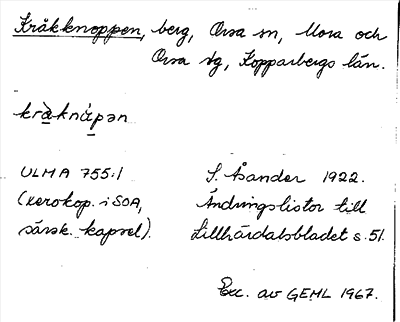 Kråkknoppen, berg, Orsa sn, Mora och
Orsa tg, Kopparbergs län.
kràknápən
ULMA 755:1
(xerokop. i SOA,
särsk. kapsel).
S. Åsander 1922.
Ändringslistor till
Lillhärdalsbladet s. 51.
Exc. av GEHL 1967.